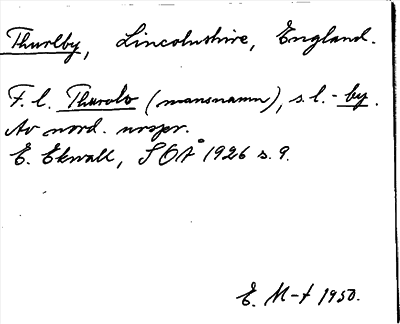 Thurlby, Lincolnshire, England.
F. l. Thurolv (mansnamn), s. l. - by.
Av nord. urspr.
E. Ekwall, SOÅ 1926 s. 9.
E. M-t 1950.